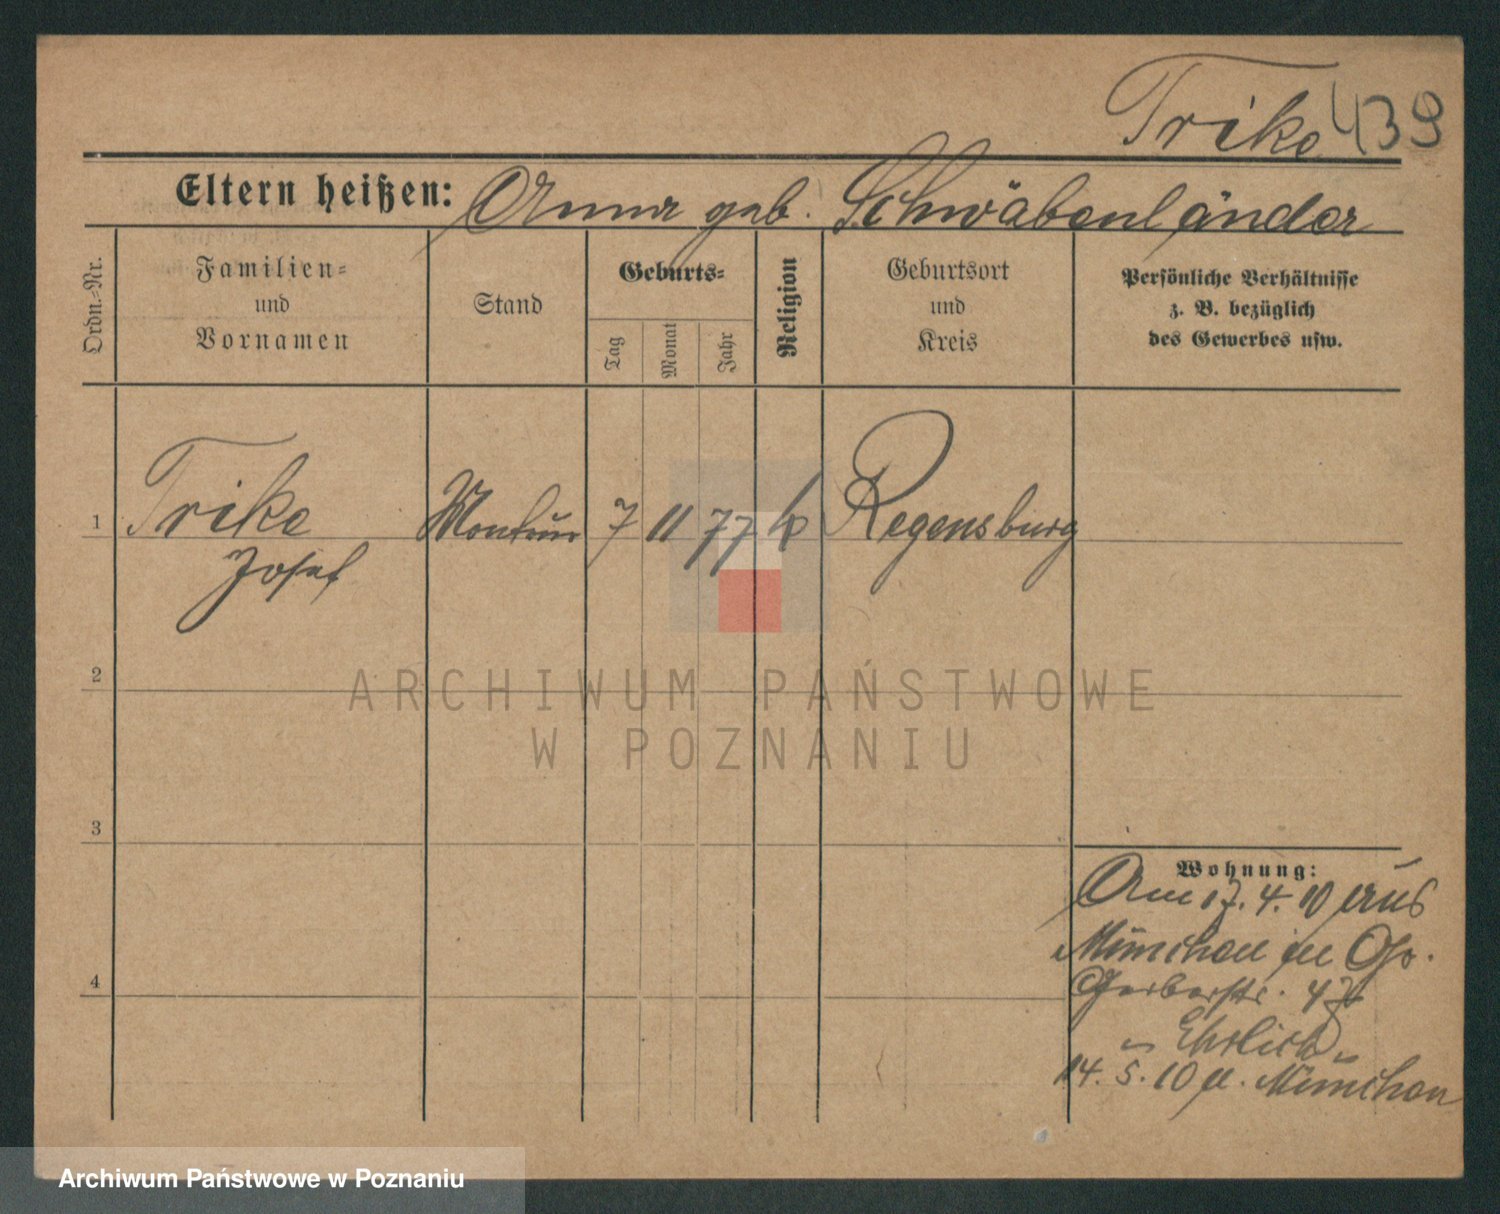 Trike 439
Eltern heißen: Anna geb. Schwäbenländer
Ordn.-Nr.
Familien-
und
Vornamen
Stand
Geburts-
Tag
Monat
Jahr
Religion
Geburtsort
und
Kreis
Persönliche Verhältnisse
z. B. bezüglich
des Gewerbes usw.
1 Trike Monteur 7 11 77 k Regensburg
Josef
2
ARCHIWUM PAŃSTWOWE
W POZNANIU
3
4
Wohnung:
Am 17. 4. 10 aus
München in Gr.
Gerberstr. 47
Ehrlich
14. 5. 10 n. München
Archiwum Państwowe w Poznaniu